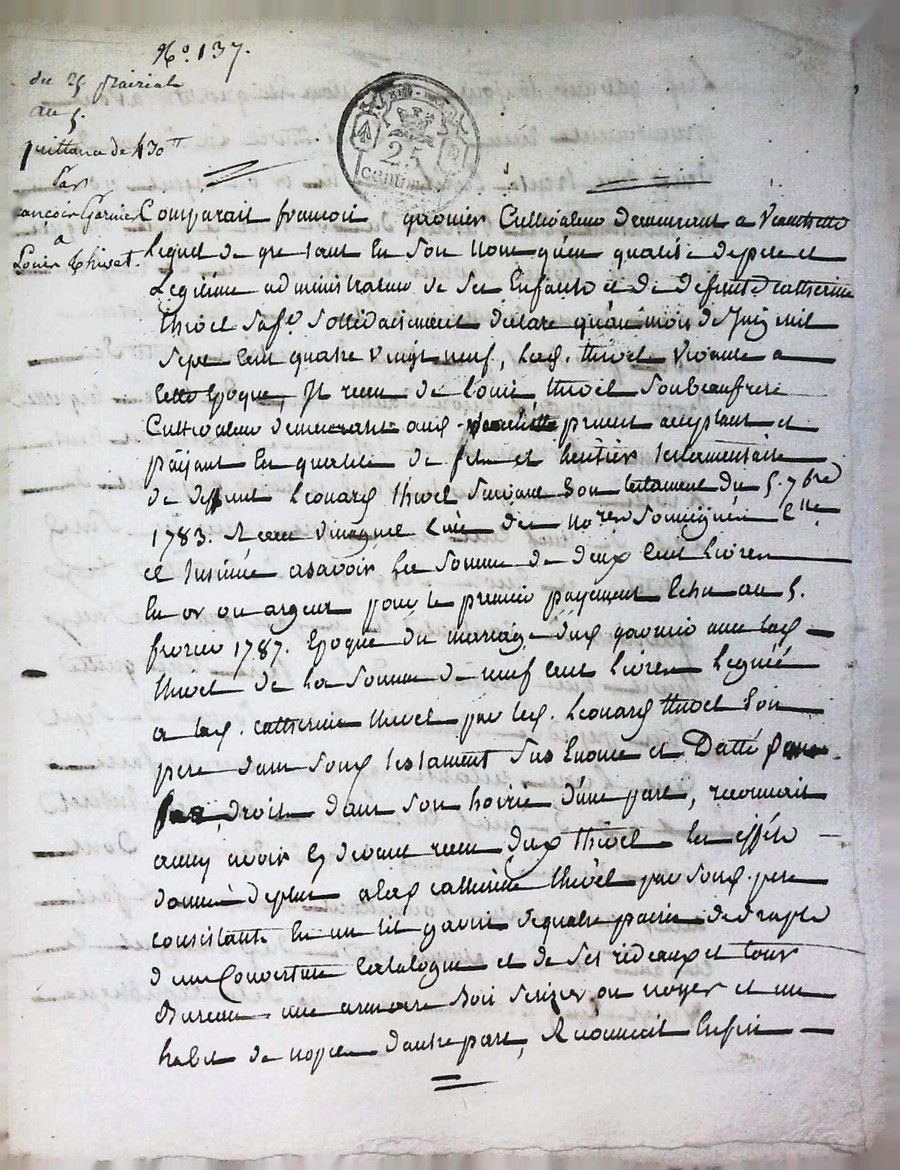 No. 137.
du 25 prairial
an 5.
quittance de 430tt
Par
françois Garnier
a
Louis Thivet.
25
centimes
Comparait francois garnier Cultivateur demeurant a
lequel de gre tant en son nom qu'en qualité de pere et
Legitime administrateur de ses Enfants et de defunte catherine
thivel sa f.e sollidairement declare qu'au mois de Juin mil
Sept Cent quatre vingt neuf, lad. thivel vivante a
cette Epoque, Il recu de louis thivel son beaufrere
Cultivateur demeurant aud. present acceptant et
païjant En qualité de fils et heritier testamentaire
de deffunt Leonard thivel suivant son testament du 5. 7bre
1783. Recu des No.res Soussignés
et Insinué asavoir la somme de deux Cent livres
En or ou argent pour le premier payement Echu au 5.
fevrier 1787. Epoque du mariage dud. garnier avec lad.
thivel de la somme de neuf cent livres Leguée
a lad. catherine thivel par led. Leonard thivel son
pere dans son d. testament sus Enoncé et Datté pour
droits dans son hoirie d'une part, reconnait
aussy avoir cy devant recu dud. thivel les effets
donnés de plus a lad. catherine thivel par son d. pere
consistants En un lit garni de quatre paires de draps
d'une Couverture Catalogne et de ses rideaux et tour
Bureau une armoire bois serizier ou noyer et un
habit de nopces d'autre part, Reconnait Enfin